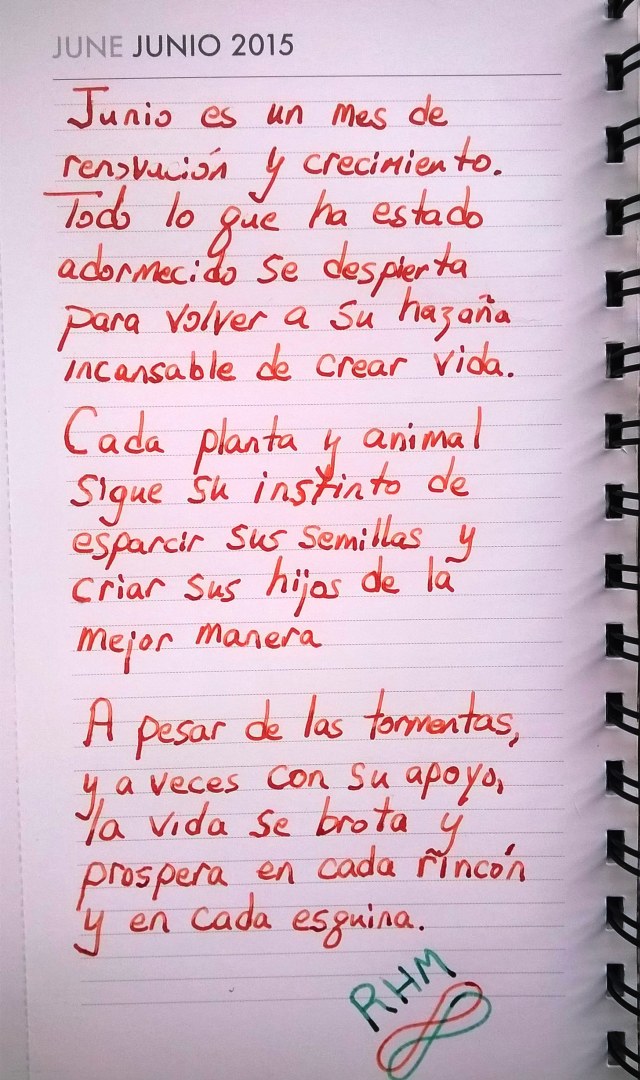 JUNE JUNIO 2015
Junio es un mes de
renovación y crecimiento.
Todo lo que ha estado
adormecido se despierta
para volver a su hazaña
incansable de crear vida.
Cada planta y animal
sigue su instinto de
esparcir sus semillas y
criar sus hijos de la
mejor manera
A pesar de las tormentas,
y a veces con su apoyo,
la vida se brota y
prospera en cada riñcón
y en cada esquina.
RHM